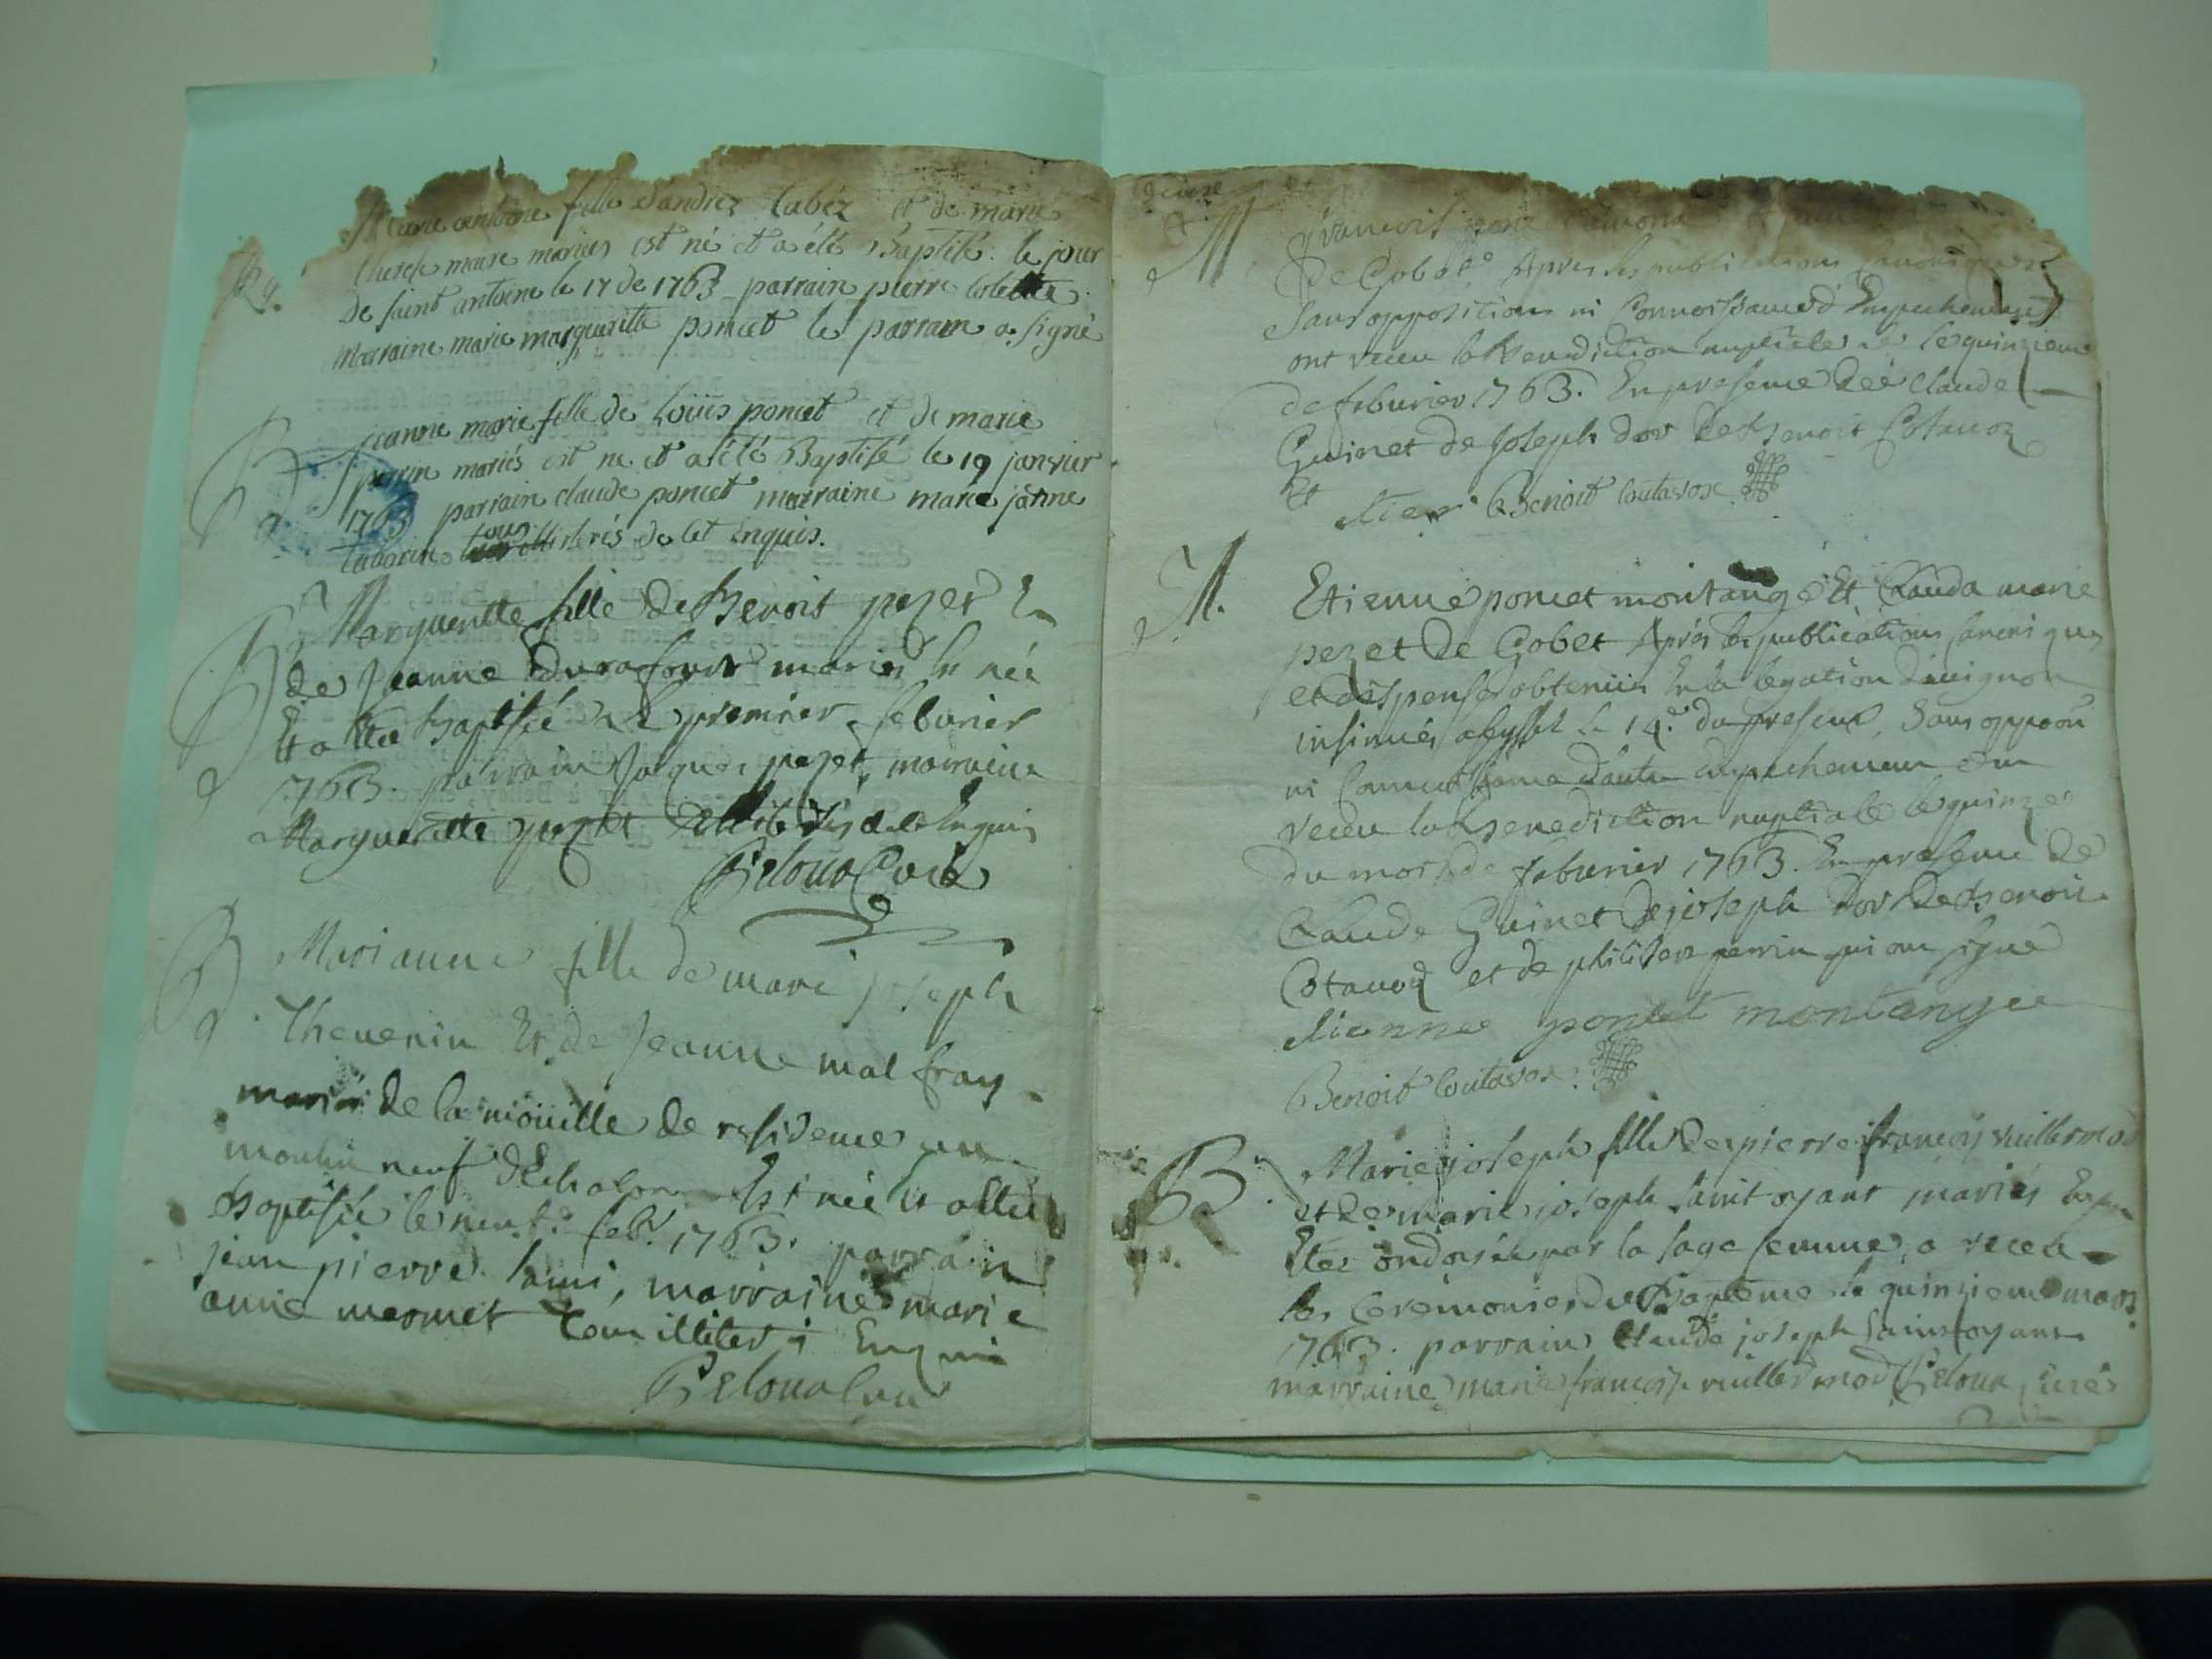 antoine fille d'andrez tabéz et de marie
therese maire mariés est né et a été Baptisé le jour
de saint antoine le 17 de 1763 parrain pierre
marraine marie marguerite poncet le parrain a signé
B
jeanne marie fille de Loüis poncet et de marie
perrin mariés est né et a été Baptisé le 19 janvier
1763 parrain claude poncet marraine marie janne
tous illiterés de let enquis.
B
Marguerite fille de Benoit pezet Et
de Jeanne Durafour mariés Est née
Et a été baptisée le premier feburier
1763. parrain Jaques pezet, marraine
Marguerite pezet illiterés de let Enquis
Reloua Curé
B
Marianne fille de marc joseph
Thevenin Et de Jeanne mal fray
mariés de la moüille de residence au
moulin neuf d'Echalon Est née et a été
baptisée le neuf feb. 1763. parrain
jean pierre lami, marraine marie
anne mermet tous illiterés Enquis
Reloua Curé
M
françois
de Gobet Apres les publications canoniques
Sans opposition ni Connoissance d'Empechement
ont receu la Benediction nuptiale le quinzieme
de feburier 1763. En presence de Claude
Guinet de Joseph dor de Benoit Cotavoz
Et
Benoit Coutavoz
M.
Etienne poncet montange Et Clauda marie
pezet de Gobet Aprés les publications canoniques
et dispense obtenuë En la legation d'avignon
insinués le 14.e du present, Sans oppoon
ni Connoissance d'autre empechement ont
receu la Benediction nuptiale le quinze
du mois de feburier 1763. En presence de
Claude Guinet de joseph dor de Benoit
Cotavoz et de philibert perrin qui ont signé
etienne poncet montange
Benoit Coutavoz
B
Marie joseph fille de pierre françois vuillermoz
et de marie joseph saint oyant mariés
Etée ondoyée par la sage femme, a receu
les Ceremonies du Bapteme le quinzieme mars
1763. parrain Claude joseph Saint oyant
marraine marie françoise vuillermoz Reloua Curé